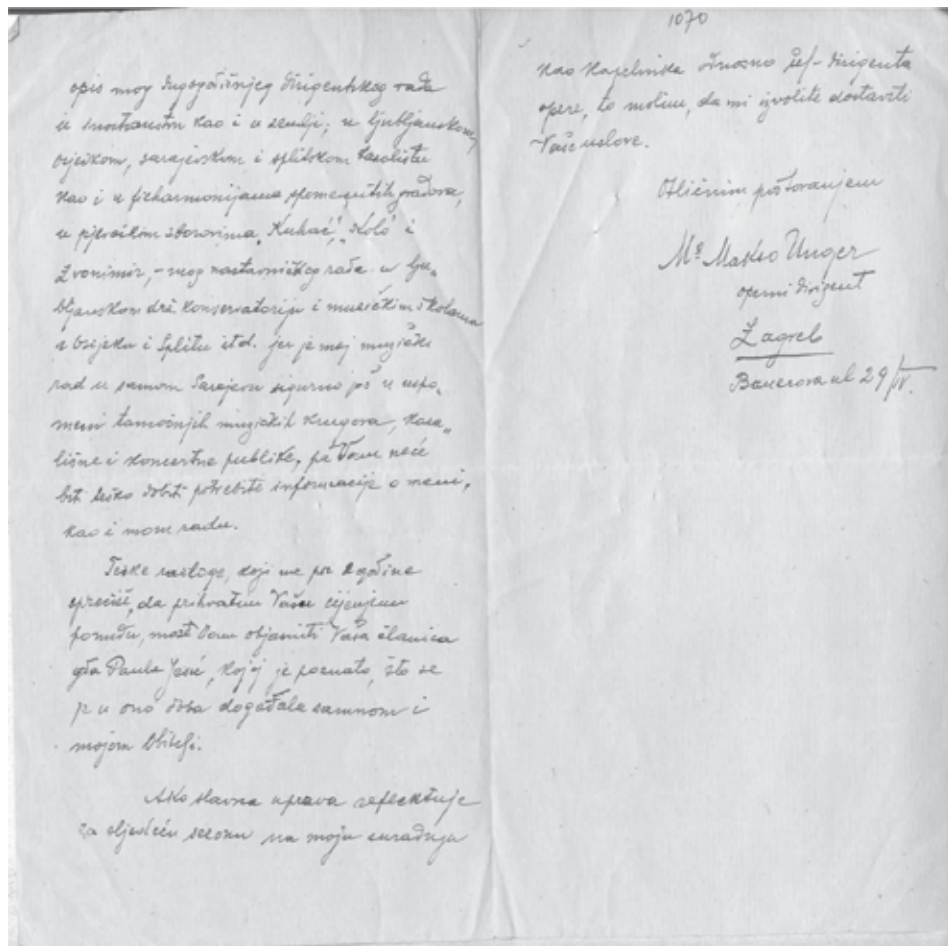 opis mog dugogodišnjeg dirigentskog rada
u inostranstvu kao i u zemlji; u ljubljanskom,
osječkom, sarajevskom i splitskom kazalištu
kao i u filharmonijama spomenutih gradova,
u pjevačkim zborovima „Kuhač", „Kolo" i
Zvonimir, - mog nastavničkog rada u lju„
bljanskom drž. konzervatoriju i muzičkim školama
u Osjeku i Splitu itd. jer je moj muzički
rad u samom Sarajevu sigurno još u uspo„
meni tamošnjih muzičkih krugova, kaza„
lišne i koncertne publike, pa Vam neće
biti teško dobiti potrebite informacije o meni,
kao i mom radu.
Teške razloge, koji me pre 2 godine
sprečiše, da prihvatim Vašu cijenjenu
ponudu, može Vam objasniti Vaša članica
gđa Paula, kojoj je poznato, što se
je u ono doba događalo samnom i
mojom obitelji.
Ako slavna uprava reflektuje
za sljedeću sezonu na moju suradnju
1070
kao kapelnika odnosno šef-dirigenta
opere, to molim, da mi izvolite dostaviti
Vaše uslove.
Odličnim poštovanjem
Mo Makso Unger
operni dirigent
Zagreb
Bauerova ul 29/IV.